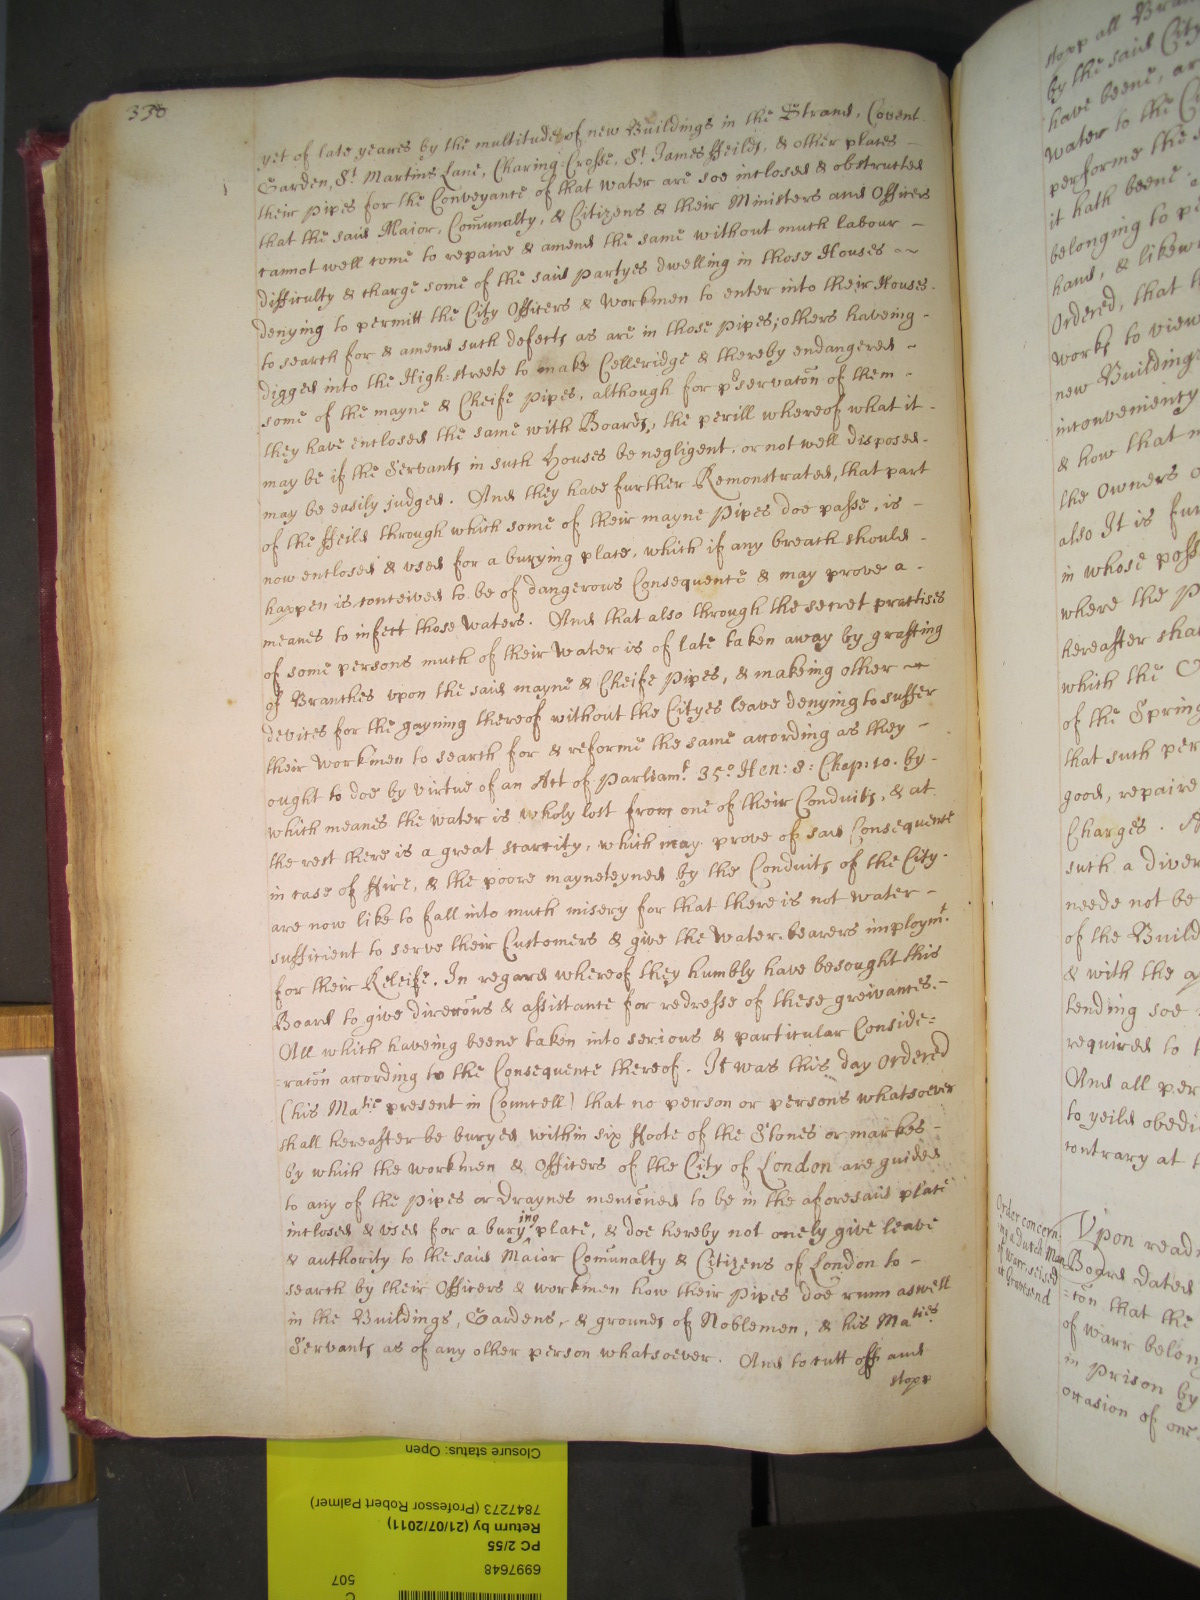 338
yet of late yeares by the multitude of new Buildings in the Strand, Covent
Garden, St Martins Lane, Charing Crosse, St James ffeilds, & other places
their pipes for the Conveyance of that water are soe inclosed & obstructed
that the said Maior, Comunalty, & Citizens & their Ministers and Officers
cannot well come to repaire & amend the same without much labour
difficulty & charge some of the said partyes dwelling in those Houses
denying to permitt the City Officers & workmen to enter into their Houses
to search for & amend such defects as are in those pipes; others haveing
digged into the High-streete to make Celleridge & thereby endangered
some of the mayne & Cheife pipes, although for pservacon of them
they have enclosed the same with Boards, the perill whereof what it
may be if the Servants in such Houses be negligent, or not well disposed
may be easily judged. And they have further Remonstrated, that part
of the ffeild through which some of their mayne pipes doe passe, is
now enclosed & used for a burying place, which if any breach should
happen is conceived to be of dangerous Consequence & may prove a
meanes to infect those waters. And that also through the secret practises
of some persons much of their water is of late taken away by grafting
of Branches upon the said mayne & Cheife pipes, & makeing other
devices for the gayning thereof without the Cityes leave denying to suffer
their workmen to search for & reforme the same according as they
ought to doe by virtue of an Act of Parliamt. 35o Hen: 8: Chap: 10. by
which meanes the water is wholy lost from one of their Conduits, & at
the rest there is a great scarcity, which may prove of sad Consequence
in case of ffire, & the poore mayneteyned by the Conduits of the City
are now like to fall into much misery for that there is not water
sufficient to serve their Customers & give the water-bearers imploymt.
for their Releife. In regard whereof they humbly have besought this
Board to give direccons & assistance for redresse of these greivances.
All which haveing beene taken into serious & particular Conside=
=racon according to the Consequence thereof. It was this day Ordered
(his Matie present in Councell) that no person or persons whatsoever
shall hereafter be buryed within six ffoote of the Stones or markes
by which the workmen & Officers of the City of London are guided
to any of the pipes or Draynes mentoned to be in the aforesaid place
inclosed & used for a burying place, & doe hereby not onely give leave
& authority to the said Maior Comunalty & Citizens of London to
search by their Officers & workmen how their pipes doe runn aswell
in the Buildings, Gardens, & grounds of Noblemen, & his Maties
Servants as of any other person whatsoever. And to cutt off and
stopp
stopp all
by the said City
have beene, or
water to the
performe the
it hath beene
belonging to
hand, & likew
Ordered, that
works to view
new Buildings
inconveniency
& how that
the Owners
also It is fur
in whose poss
where the
hereafter shal
which the
of the Spring
that such per
good, repaire
Charges.
such a diver
neede not be
of the Build
& with the
tending soe
required to
And all per
to yeild obedi
contrary at
Order concern=
=ing a Dutch Man
of Warr seised
at Gravesend
Upon read
Board Dated
=con that the
of warr belon
in prison by
occasion of one
Closure status: Open
7847273 (Professor Robert Palmer)
Return by (21/07/2011)
PC 2/55
6997648
C
507